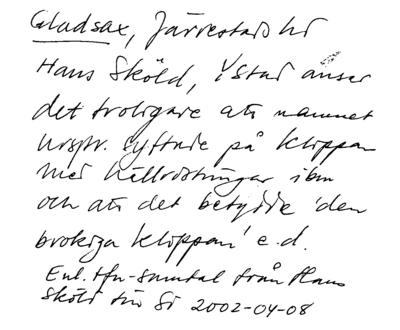 Gladsax, Järrestads hd
Hans Sköld, Ystad anser
det troligare att namnet
urspr. syftade på klippan
med hällristningar i bm
och att det betydde 'den
brokiga klippan' e.d.
Enl. tfn-samtal från Hans
Sköld till SS 2002-04-08